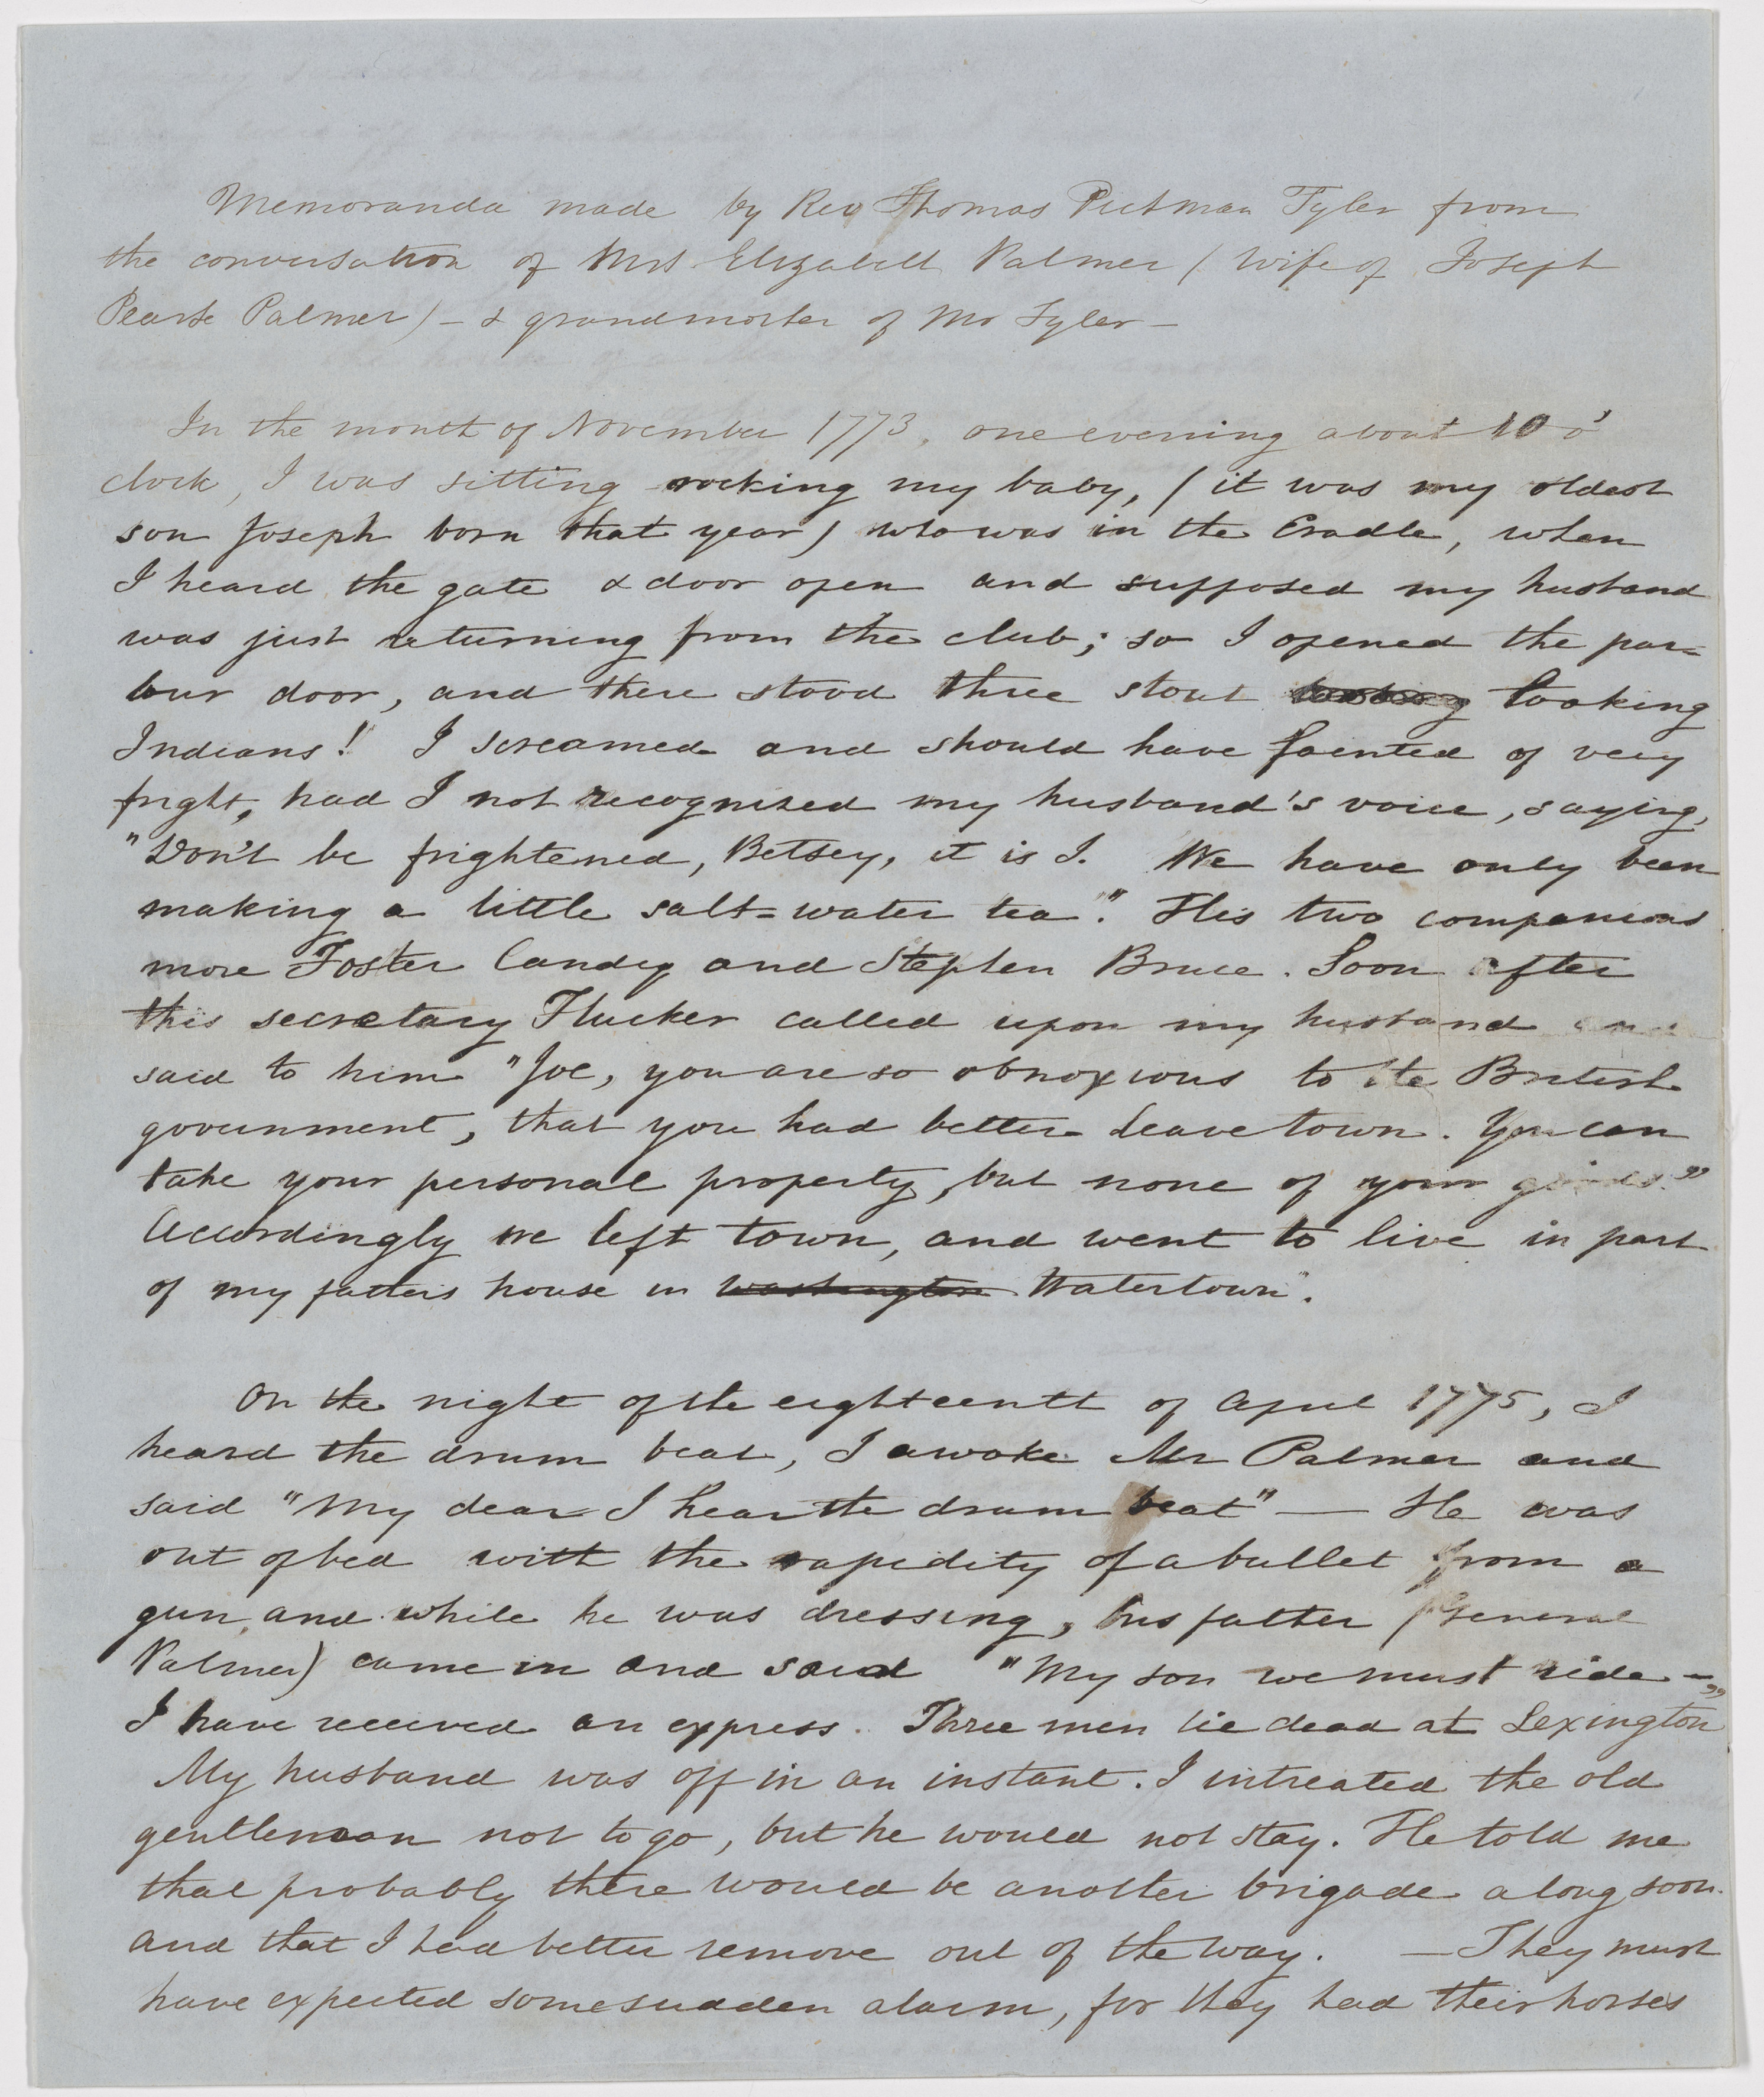 Memoranda made by Rev Thomas Putman Tyler from
the conversation of Mrs Elizabeth Palmer (wife of Joseph
Pearse Palmer) – & grandmother of Mr Tyler –
In the month of November 1773, one evening about 10 o'
clock, I was sitting rocking my baby, (it was my oldest
son Joseph born that year) who was in the Cradle, when
I heard the gate & door open and supposed my husband
was just returning from the club; so I opened the par=
lour door, and there stood three stout looking
Indians! I screamed and should have fainted of very
fright, had I not recognised my husband's voice, saying,
"Don't be frightened, Betsey, it is I. We have only been
making a little salt=water tea." His two companions
more Foster Condey and Stephen Bruce. Soon after
this secretary Flucker called upon my husband and
said to him "Joe, you are so obnoxious to the British
government, that you had better leave town. You can
take your personal property, but none of your goods."
Accordingly we left town, and went to live in part
of my fathers house in washington Watertown".
On the night of the eighteenth of April 1775, I
heard the drum beat, I awoke Mr Palmer and
said "My dear I hear the drum beat" — He was
out of bed with the rapidity of a bullet from a
gun, and while he was dressing, his father (General
Palmer) came in and said "My son we must ride –"
I have received an express. Three men lie dead at Lexington
My husband was off in an instant. I intreated the old
gentleman not to go, but he would not stay. He told me
that probably there would be another brigade along soon.
and that I had better remove out of the way. — They must
have expected some sudden alarm, for they had their horses